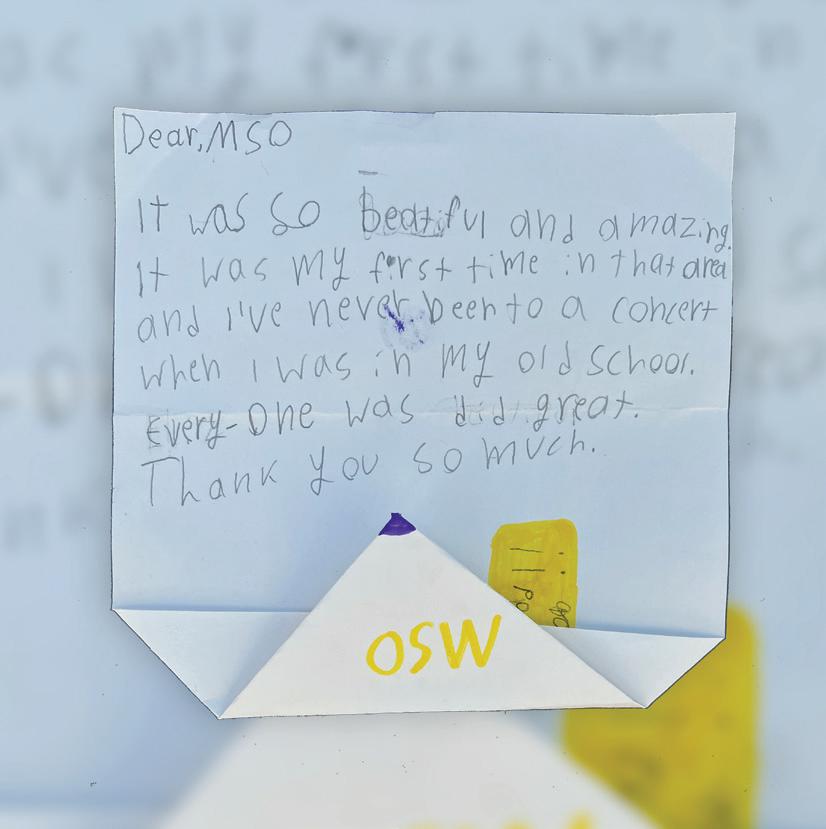 Dear, MSO
It was so beatiful and amazing.
It was my first time in that area
and I've never been to a concert
when I was in my old school.
Every-One was did great.
Thank you so much.
OSW